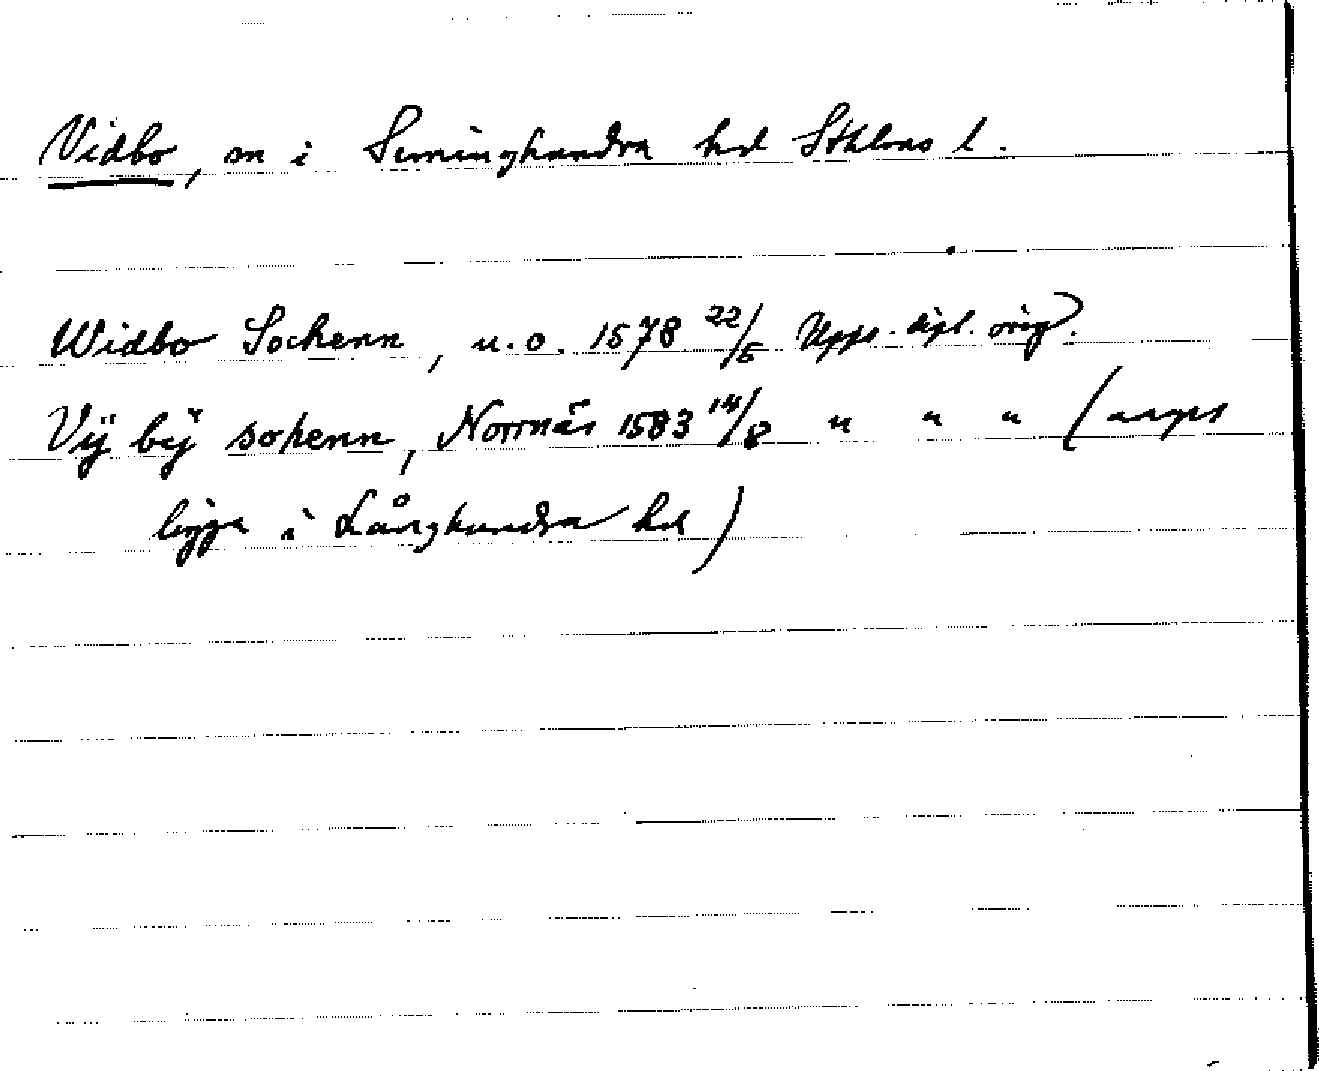 Vidbo, sn i Seminghundra hd Sthlms l.
Widbo Sockenn, u.o. 1578 22/5 Upps. dipl. orig.
Vÿ bÿ sokenn, Norrnäs 1583 14/8 " " " (anges
ligga i Långhundra hd)